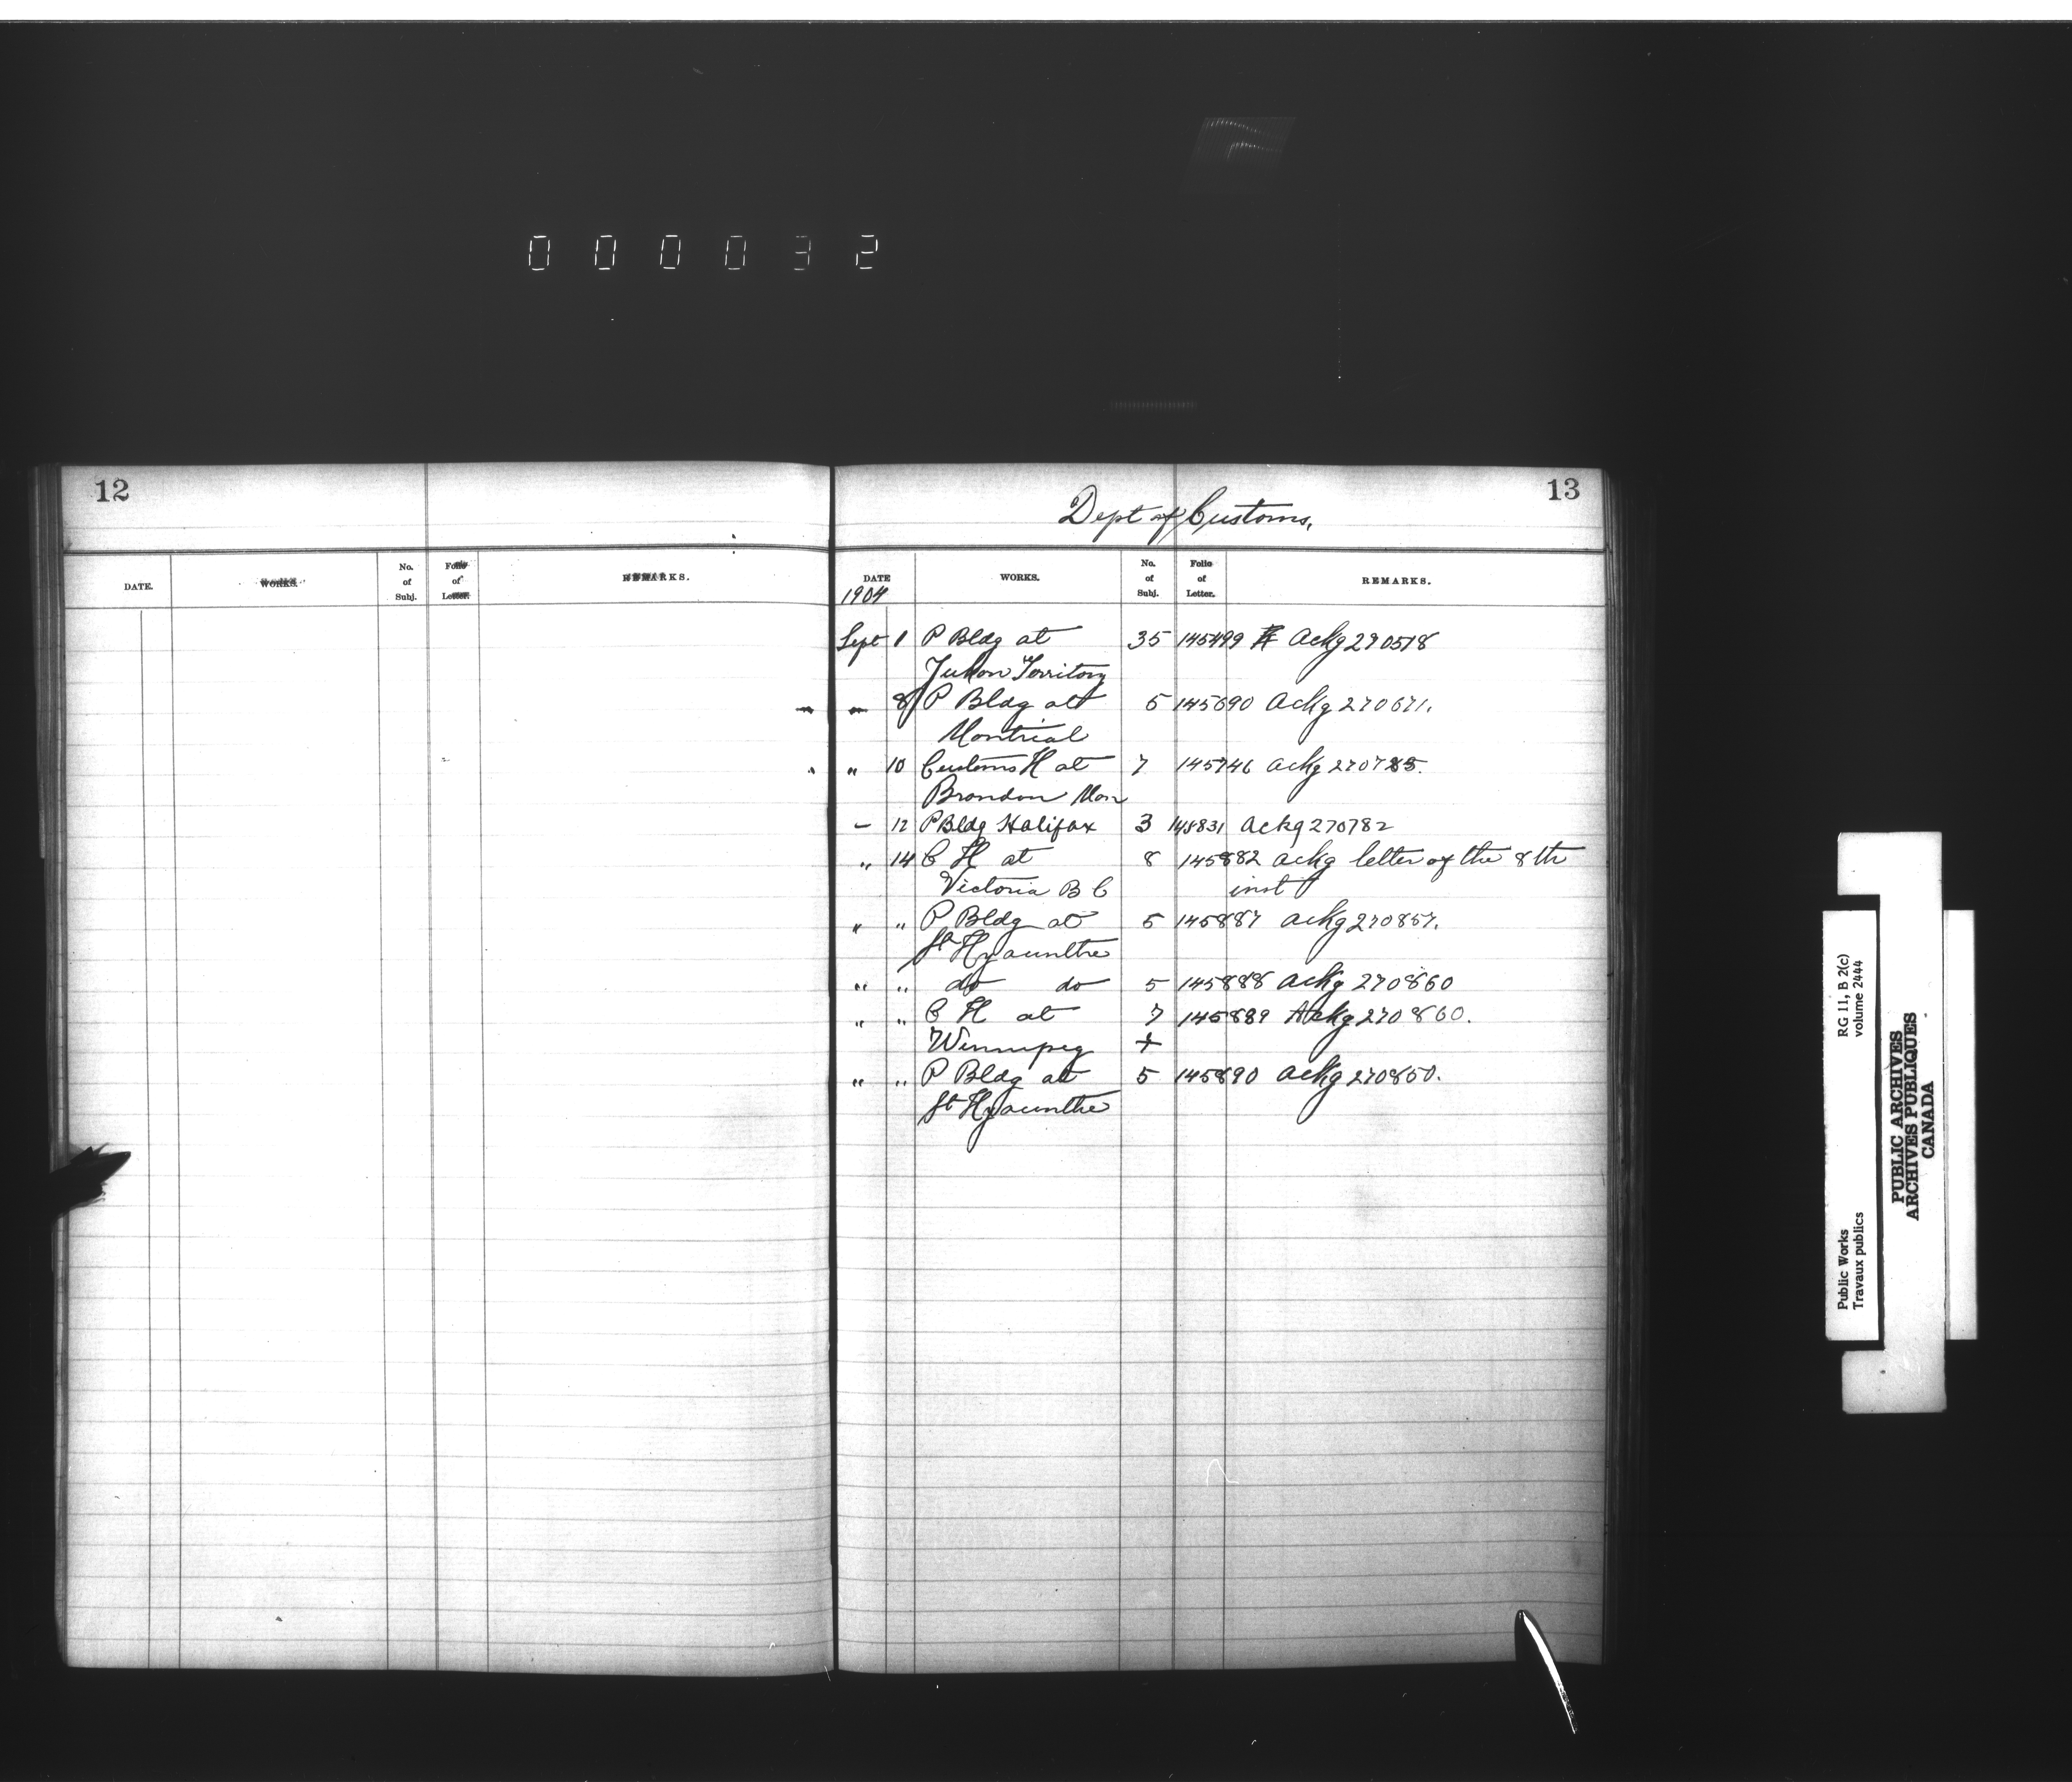 000032
12
DATE. WORKS. No. of Subj. Folio of Letter. REMARKS.
13
Dept of Customs,
DATE WORKS. No. of Subj. Folio of Letter. REMARKS.
1904
Sept 1 P Bldg at 35 145499 Ackg 270518
Yukon Territory
" 8 P Bldg at 5 145690 Ackg 270671.
Montrial
" 10 Customs H at 7 145746 Ackg 270785.
Brandon Man
" 12 P Bldg Halifax 3 145831 Ackg 270782
" 14 C H at 8 145882 Ackg letter of the 8th
Victoria B C inst
" " P Bldg at 5 145887 Ackg 270857.
St Hyacinthe
" " do do 5 145888 Ackg 270860
" " C H at 7 145889 Ackg 270860.
Winnipeg +
" " P Bldg at 5 145890 Ackg 270850.
St Hyacinthe
Public Works RG 11, B 2(c)
Travaux publics volume 2444
PUBLIC ARCHIVES
ARCHIVES PUBLIQUES
CANADA